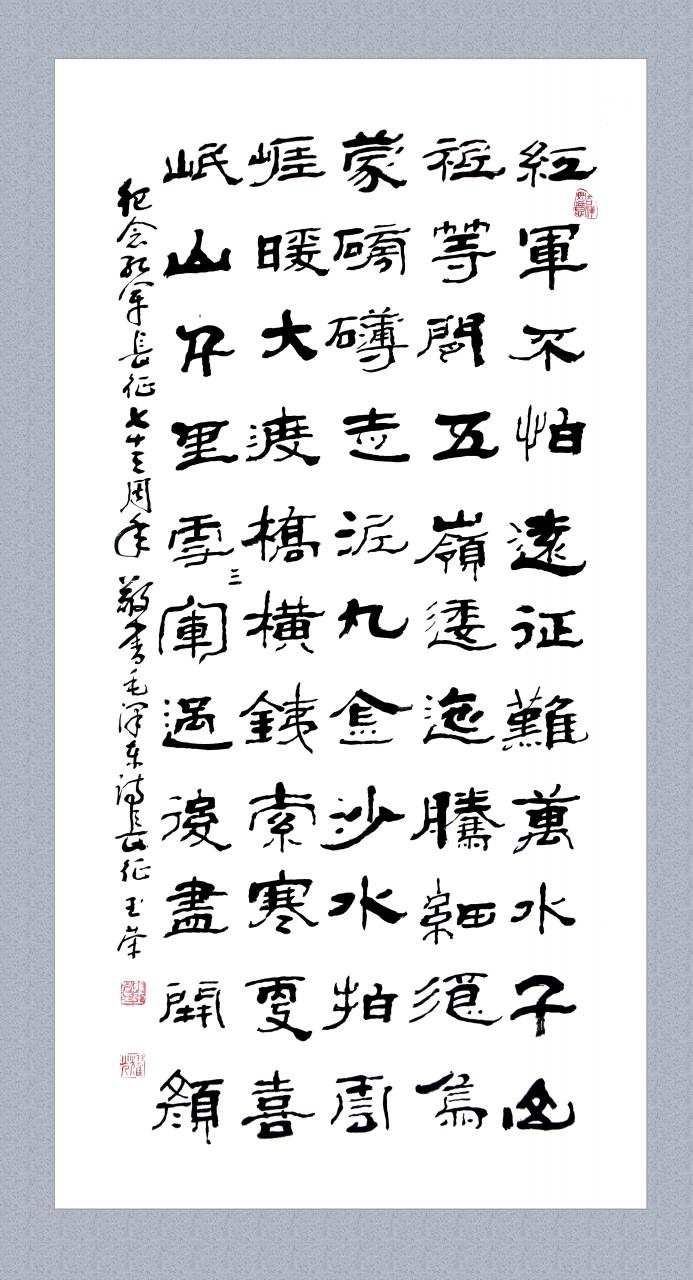 紅軍不怕遠征難萬水千山
祗等間五嶺逶迤騰細浪烏
蒙磅礴走泥丸金沙水拍雲
崕暖大渡橋橫銕索寒更喜
岷山千里雪三軍過後盡開顏
紀念紅軍長征七十三周年敬書毛泽东诗長征玉荣